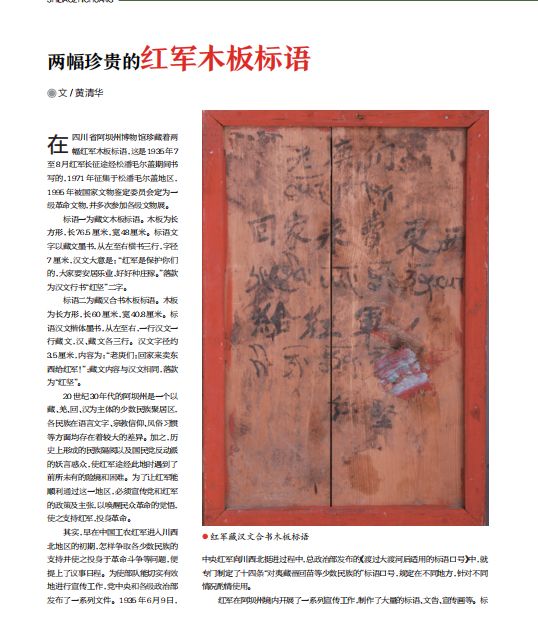 两幅珍贵的红军木板标语
文 / 黄清华
在四川省阿坝州博物馆珍藏着两
幅红军木板标语,这是1935年7
至8月红军长征途经松潘毛尔盖期间书
写的,1971年征集于松潘毛尔盖地区,
1995年被国家文物鉴定委员会定为一
级革命文物,并多次参加各级文物展。
标语一为藏文木板标语。木板为长
方形,长76.5厘米,宽48厘米。标语文
字以藏文墨书,从左至右横书三行,字径
7厘米,汉文大意是:“红军是保护你们
的,大家要安居乐业,好好种庄稼。”落款
为汉文行书“红坚”二字。
标语二为藏汉合书木板标语。木板
为长方形,长60厘米,宽40.8厘米。标
语汉文楷体墨书,从左至右,一行汉文一
行藏文,汉、藏文各三行。汉文字径约
3.5厘米,内容为:“老庚们:回家来卖东
西给红军!”;藏文内容与汉文相同,落款
为“红坚”。
20世纪30年代的阿坝州是一个以
藏、羌、回、汉为主体的少数民族聚居区,
各民族在语言文字、宗教信仰、风俗习惯
等方面均存在着较大的差异。加之,历
史上形成的民族隔阂以及国民党反动派
的妖言惑众,使红军途经此地时遇到了
前所未有的险境和困难。为了让红军能
顺利通过这一地区,必须宣传党和红军
的政策及主张,以唤醒民众革命的觉悟,
使之支持红军,投身革命。
其实,早在中国工农红军进入川西
北地区的初期,怎样争取各少数民族的
支持并使之投身于革命斗争等问题,便
提上了议事日程。为使部队能切实有效
地进行宣传工作,党中央和各级政治部
发布了一系列文件。1935年6月9日,
老庚们
回家来卖东西
给红军
红坚
红军藏汉文合书木板标语
中央红军向川西北挺进过程中,总政治部发布的《渡过大渡河后适用的标语口号》中,就
专门制定了十四条“对夷藏番回苗等少数民族的”标语口号,规定在不同地方,针对不同
情况酌情使用。
红军在阿坝州境内开展了一系列宣传工作,制作了大量的标语、文告、宣传画等。标